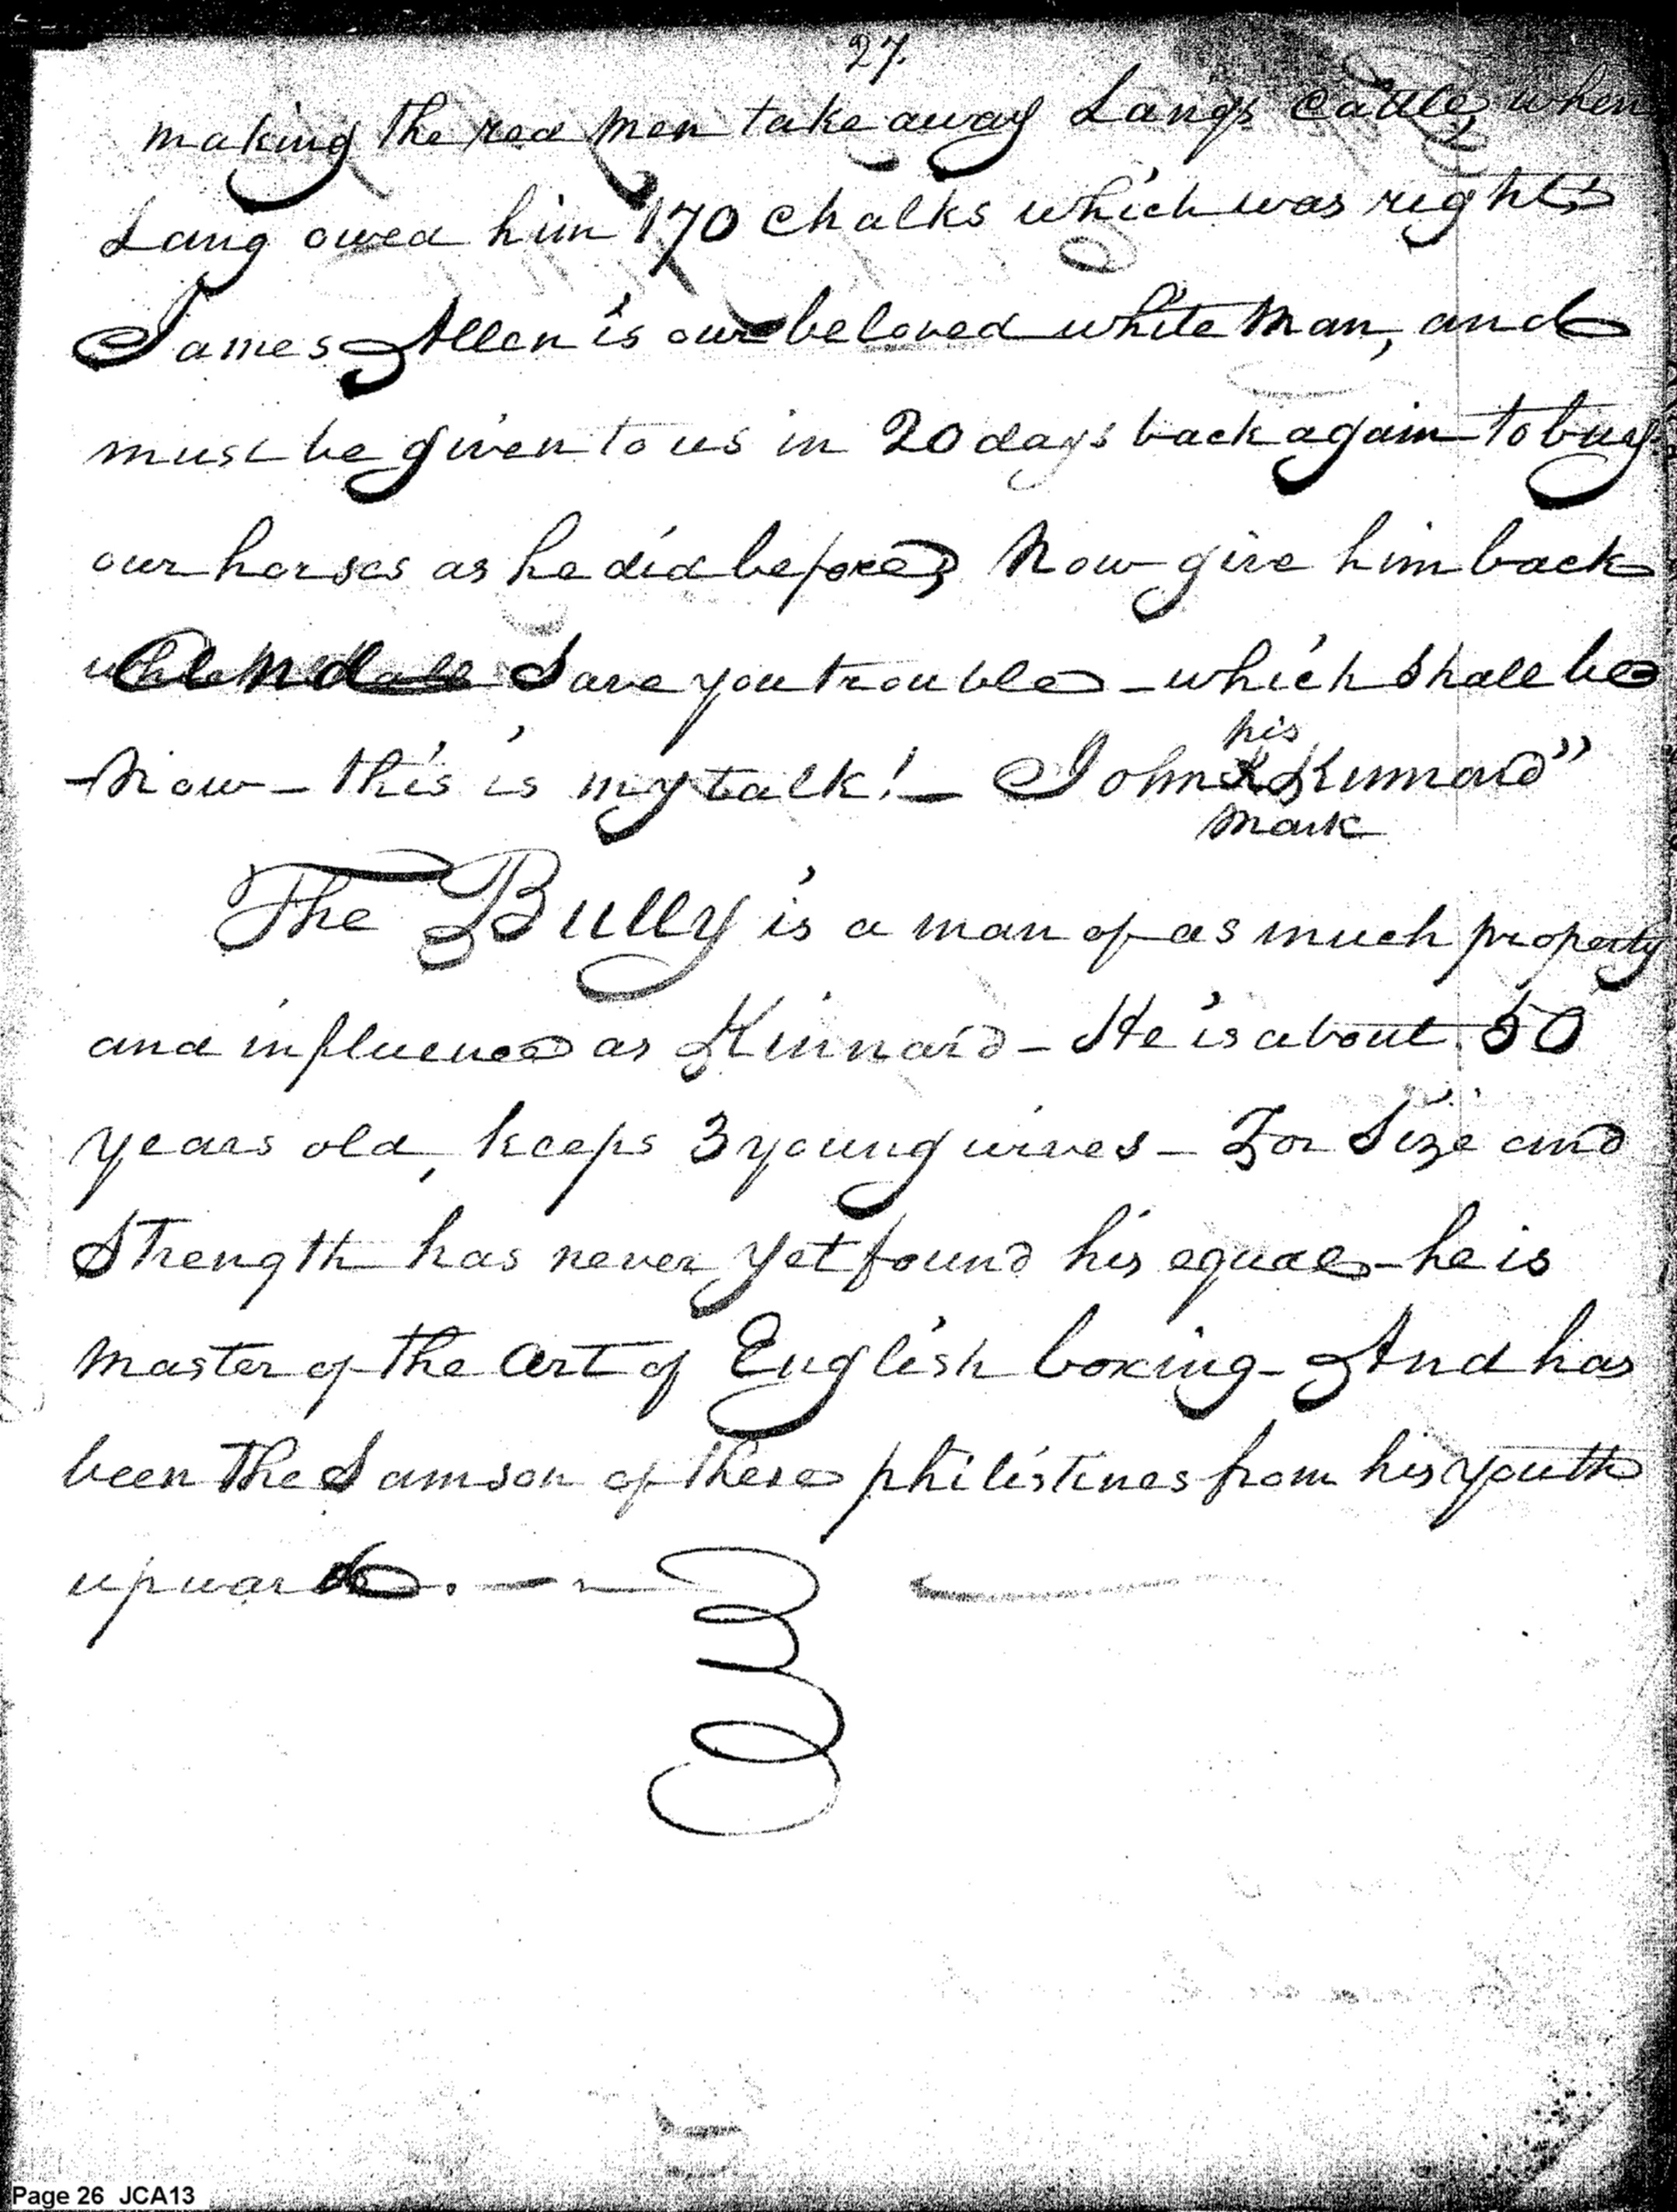 27.
making the red men take away Langs Cattle, when
Lang owed him 170 Chalks which was right;
James Allen is our beloved white Man, and
must be given to us in 20 days back again to buy
our horses as he did before; Now give him back
Save you trouble – which shall be
Now – this is my talk! –
his
John X Kinnard"
mark
The Bully is a man of as much property
and influence as Kinnard – He is about 50
years old, keeps 3 young wives – For Size and
Strength has never yet found his equal – he is
Master of the Art of English boxing – And has
been The Samson of these philistines from his youth
upward. –
Page 26 JCA13